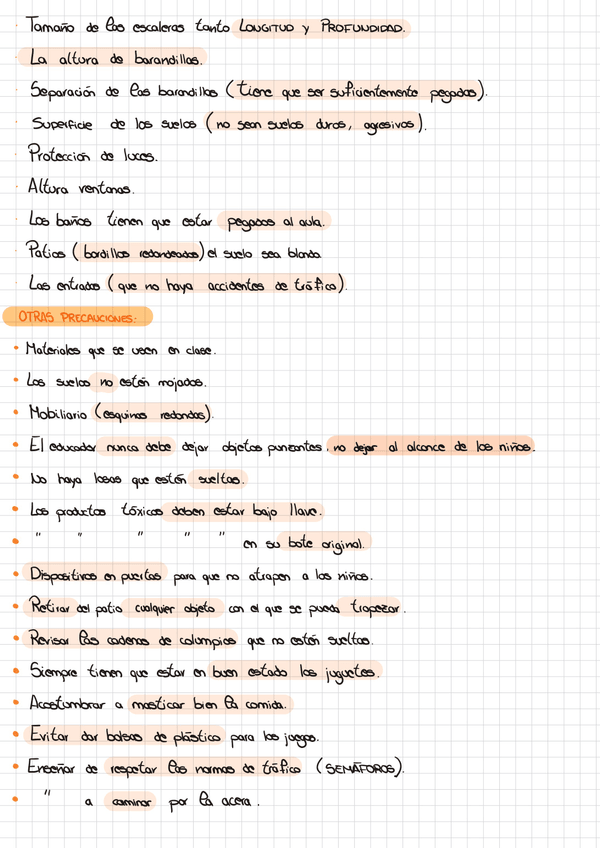 · Tamaño de las escaleras tanto LONGITUD y PROFUNDIDAD.
· La altura de barandillas.
· Separación de las barandillas (tiene que ser suficientemente pegadas).
· Superficie de los suelos (no sean suelos duros, agresivos).
· Protección de luces.
· Altura ventanas.
· Los baños tienen que estar pegados al aula.
· Patios (bordillos redondeados) el suelo sea blando.
· Las entradas (que no haya accidentes de tráfico).
OTRAS PRECAUCIONES:
• Materiales que se usen en clase.
• Los suelos no estén mojados.
• Mobiliario (esquinas redondas).
• El educador nunca debe dejar objetos punzantes, no dejar al alcance de los niños.
• No haya losas que estén sueltas.
• Los productos tóxicos deben estar bajo llave.
• " " " " " en su bote original.
• Dispositivos en puertas para que no atrapen a los niños.
• Retirar del patio cualquier objeto con el que se pueda tropezar.
• Revisar las cadenas de columpios que no estén sueltas.
• Siempre tienen que estar en buen estado los juguetes.
• Acostumbrar a masticar bien la comida.
• Evitar dar bolsas de plástico para los juegos.
• Enseñar de respetar las normas de tráfico (SEMÁFOROS).
• " a caminar por la acera.